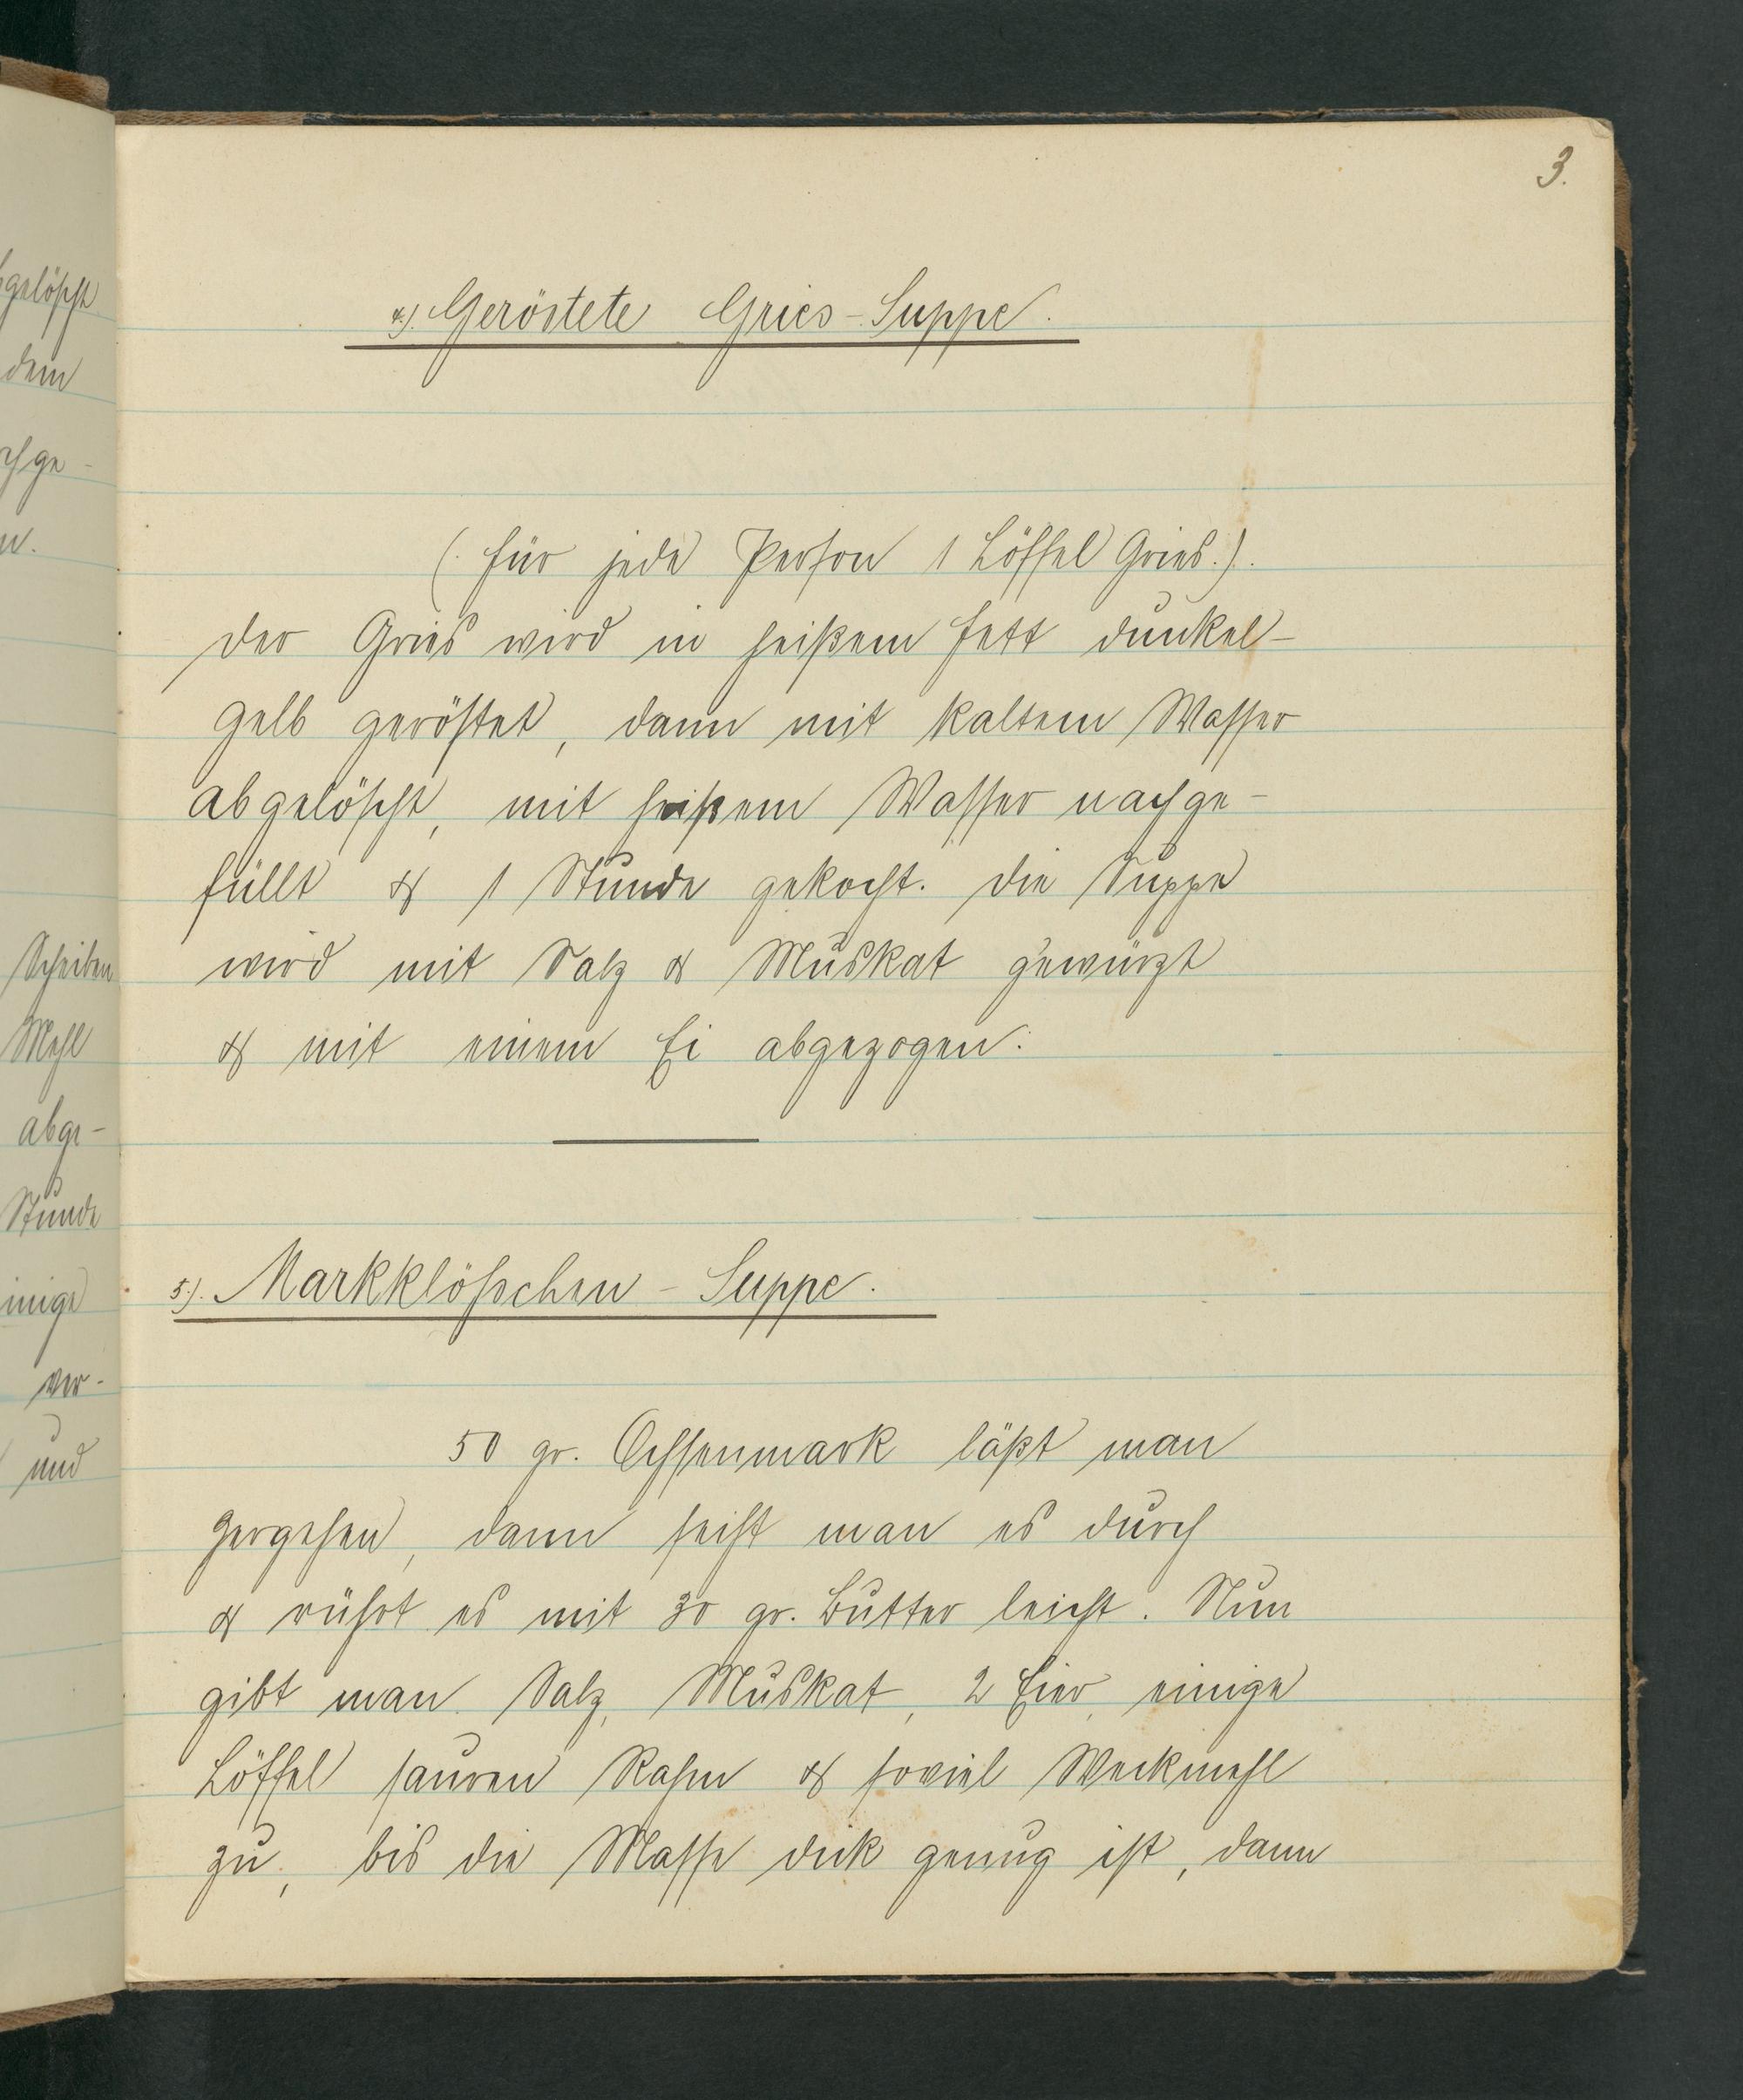 gelöscht
dem
chge-
n.
Scheiben
Mehl
abge-
Stunde
einige
ver-
und
3.
4.). Geröstete Gries-Suppe.
(. für jede Person 1 Löffel Gries.).
der Gries wird in heißem Fett dunkel-
gelb geröstet, dann mit kaltem Wasser
abgelöscht, mit heißem Wasser nachge-
füllt & 1 Stunde gekocht. die Suppe
wird mit Salz & Muskat gewürzt
& mit einem Ei abgezogen.
5.). Markklößchen - Suppe.
50 gr. Ochsenmark läßt man
zergehen, dann seiht man es durch
& rührt es mit 30 gr. Butter leicht. Nun
gibt man Salz, Muskat, 2 Eier, einige
Löffel sauren Rahm & soviel Weckmehl
zu, bis die Masse dick genug ist, dann